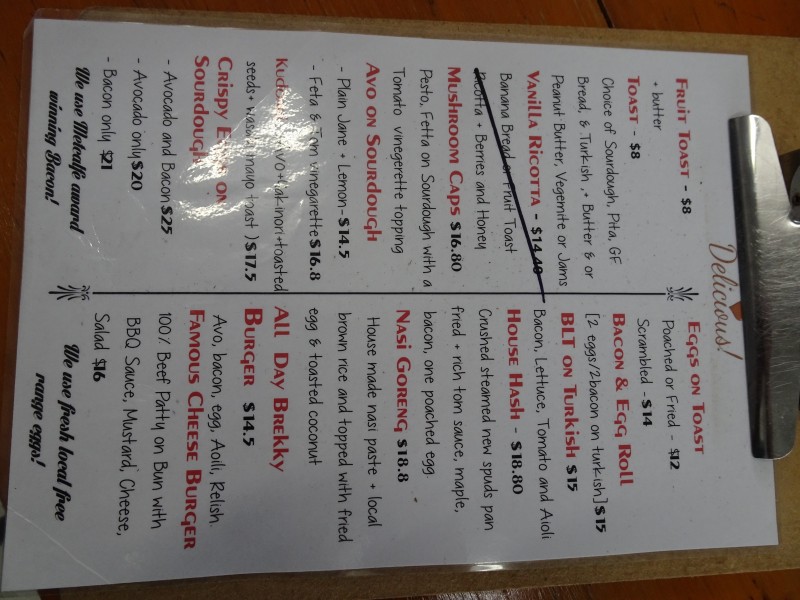 Delicious!
FRUIT TOAST - $8
+ butter
TOAST - $8
Choice of Sourdough, Pita, GF
Bread, & Turkish , + Butter & or
Peanut Butter, Vegemite or Jams
VANILLA RICOTTA - $14.40
Banana Bread or Fruit Toast
Ricotta + Berries and Honey
MUSHROOM CAPS $16.80
Pesto, Fetta on Sourdough with a
Tomato vinegerette topping
AVO ON SOURDOUGH
- Plain Jane + Lemon- $14.5
- Feta & Tom vinegarette $16.8
+toasted
seeds+ wasabi mayo toast ) $17.5
CRISPY ON
SOURDOUGH
- Avocado and Bacon $25
- Avocado only $20
- Bacon only $21
We use Metcalfe award
winning Bacon!
EGGS ON TOAST
Poached or Fried - $12
Scrambled - $14
BACON & EGG ROLL
[2 eggs/2bacon on turkish] $15
BLT ON TURKISH $15
Bacon, Lettuce, Tomato and Aioli
HOUSE HASH - $18.80
Crushed steamed new spuds pan
fried + rich tom sauce, maple,
bacon, one poached egg
NASI GORENG $18.8
House made nasi paste + local
brown rice and topped with fried
egg & toasted coconut
ALL DAY BREKKY
BURGER $14.5
Avo, bacon, egg, Aoili, Relish.
FAMOUS CHEESE BURGER
100% Beef Patty on Bun with
BBQ Sauce, Mustard, Cheese,
Salad $16
We use fresh local free
range eggs!